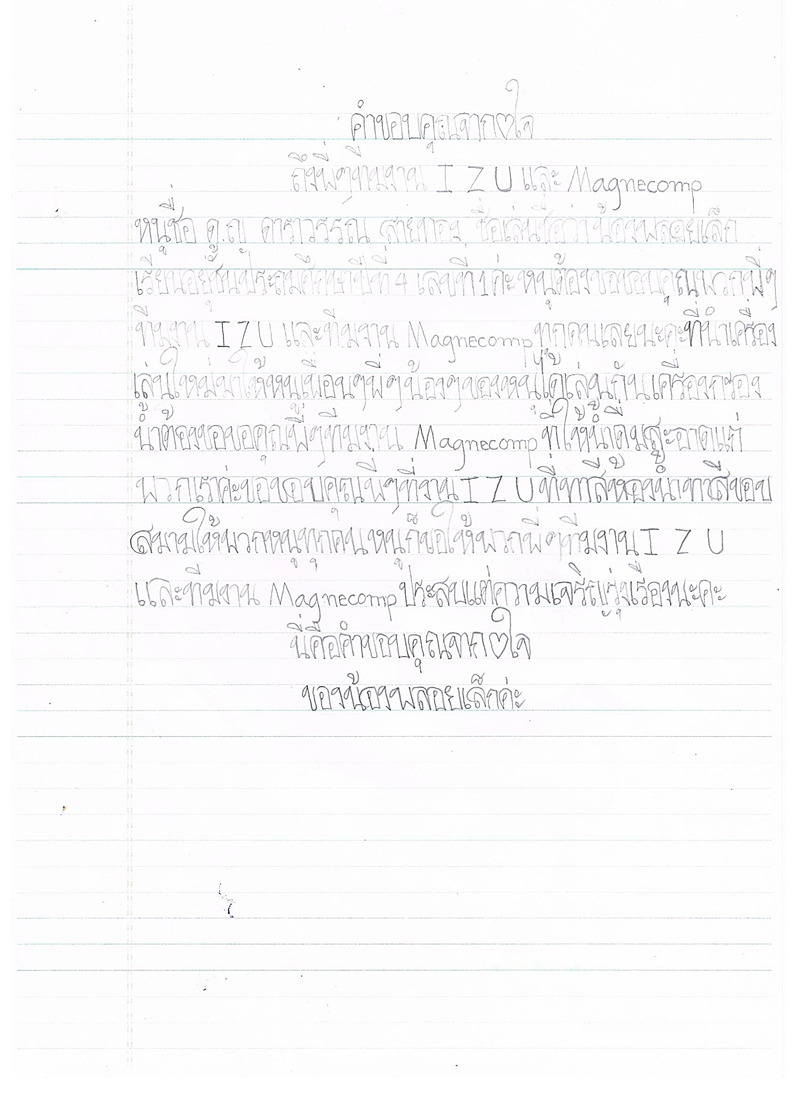 คำขอบคุณจาก♡ใจ
ถึงพี่ๆทีมงาน I Z U และ Magnecomp
หนูชื่อ ด.ญ ดาราวรรณ สายทอง ชื่อเล่นชื่อว่าน้องพลอยเล็ก
เรียนอยู่ชั้นประถมศึกษาปีที่ 4 เลขที่ 1 ค่ะหนูต้องขอขอบคุณพวกพี่ๆ
ทีมงาน I Z U และทีมงาน Magnecomp ทุกคนเลยนะคะที่นำเครื่อง
เล่นใหม่มาให้หนูเพื่อนๆพี่ๆน้องๆของหนูได้เล่นกันเครื่องกรอง
น้ำต้องขอขอคุณพี่ๆทีมงาน Magnecomp ที่ให้น้ำดื่มสะอาดแก่
พวกเราค่ะขอขอบคุณพี่ๆที่งาน I Z U ที่ทาสีห้องน้ำทาสีขอบ
สนามให้พวกหนูทุกคนหนูก็ขอให้พวกพี่ๆทีมงาน I Z U
และทีมงาน Magnecomp ประสบแต่ความเจริญรุ่งเรืองนะคะ
นี่คือคำขอบคุณจาก♡ใจ
ของน้องพลอยเล็กค่ะ